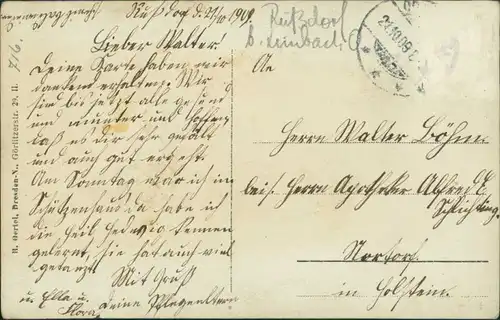 Rußdorf d. 21/10 1909.
Lieber Walter.
Deine Karte haben wir
dankend erhalten. Wir
sind bis jetzt alle gesund
und munter und hoffen
daß es dir sehr gefällt
und auch gut ergeht.
Am Sonntag war ich im
Schützenhaus da habe ich
die Heil Hedwig kennen
gelernt, sie hat auch viel
getanzt.
Mit Gruß
deine Pflegeeltern
u. Ella u.
Flora.
716.
H. Oertel, Dresden-N., Görlitzerstr. 29. II.
Rußdorf
b. Limbach
21.10.09
An
Herrn Walter Böhme
bei Herrn Apotheker Alfred
Schlichting.
Nortorf
in Holstein.